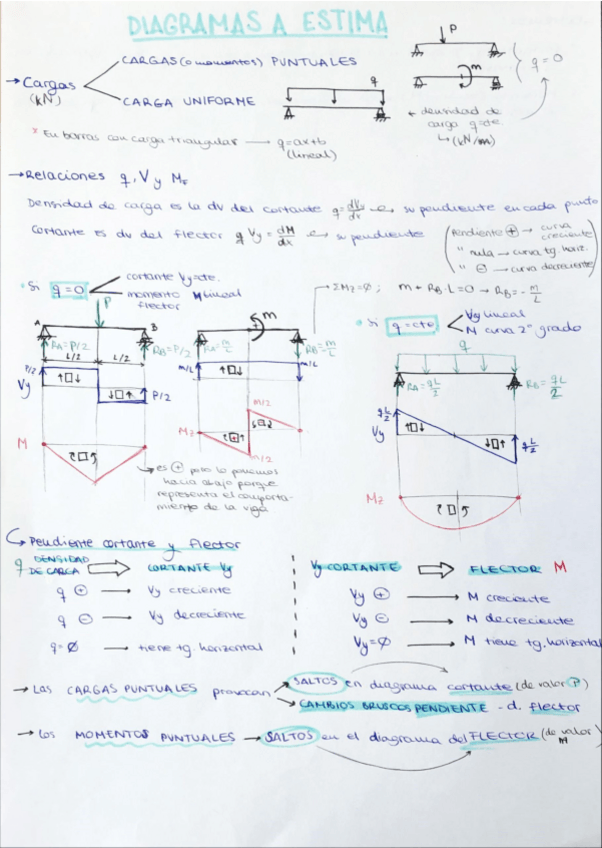 DIAGRAMAS A ESTIMA
P
→ Cargas (kN)
CARGAS (o momentos) PUNTUALES
m
q = 0
q
CARGA UNIFORME
← densidad de carga q=cte
↳ (kN/m)
* En barras con carga triangular → q=ax+b
(lineal)
→ Relaciones q, Vy MF
Densidad de carga es la dv del cortante q=dVy/dx su pendiente en cada punto
Cortante es dv del flector Vy=dM/dx su pendiente
Pendiente ⊕ → curva creciente
" nula → curva tg. horiz.
" ⊖ → curva decreciente
* Si q=0
cortante Vy=cte.
momento M lineal
flector
ΣMz=0 ; m + RB·L=0 → RB=-m/L
* Si q=cte
Vy lineal
M curva 2º grado
P
A
B
m
q
RA=P/2
RB=P/2
RA=m/L
RB=m/L
RA=qL/2
RB=qL/2
L/2
L/2
P/2
Vy
P/2
m/L
m/L
qL/2
Vy
qL/2
M
Mz
m/2
m/2
Mz
es ⊕ pero lo ponemos
hacia abajo porque
representa el comporta-
miento de la viga
↳ Pendiente cortante y flector
q DENSIDAD DE CARGA ⇒ CORTANTE Vy
q ⊕ → Vy creciente
q ⊖ → Vy decreciente
q=∅ → tiene tg. horizontal
Vy CORTANTE ⇒ FLECTOR M
Vy ⊕ → M creciente
Vy ⊖ → M decreciente
Vy=∅ → M tiene tg. horizontal
→ Las CARGAS PUNTUALES provocan
SALTOS en diagrama cortante (de valor P)
CAMBIOS BRUSCOS PENDIENTE - d. flector
→ Los MOMENTOS PUNTUALES → SALTOS en el diagrama del FLECTOR (de valor M)